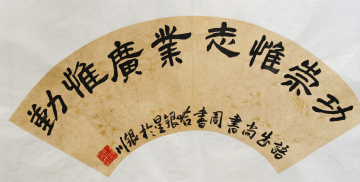 功崇惟志業廣惟勤
語出尚書周書 哈銀星於銀川